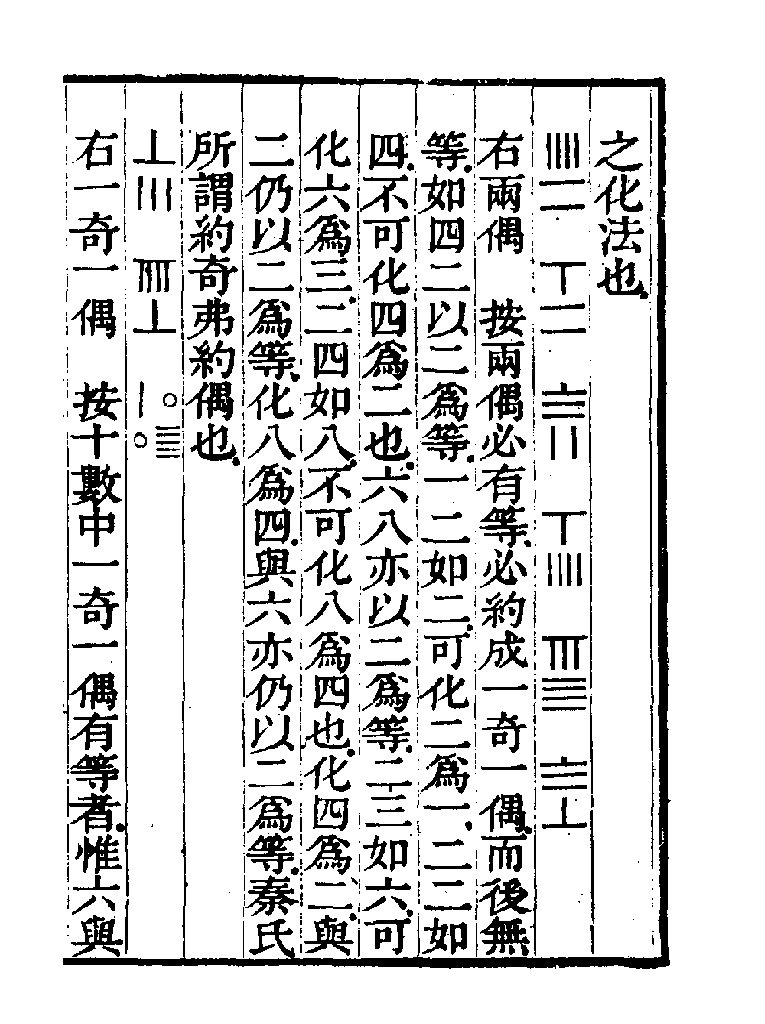 之化法也
𝍣𝍪　𝍥𝍪　𝍰𝍡　𝍥𝍣　𝍧𝍬　𝍰𝍮
右兩偶　按兩偶必有等必約成一奇一偶而後無
等如四二以二爲等一二如二可化二爲一二二如
四不可化四爲二也六八亦以二爲等二三如六可
化六爲三二四如八不可化八爲四也化四爲二與
二仍以二爲等化八爲四與六亦仍以二爲等秦氏
所謂約奇弗約偶也
𝍮𝍢　𝍨𝍮　〇𝍭　𝍠〇
右一奇一偶　按十數中一奇一偶有等者惟六與